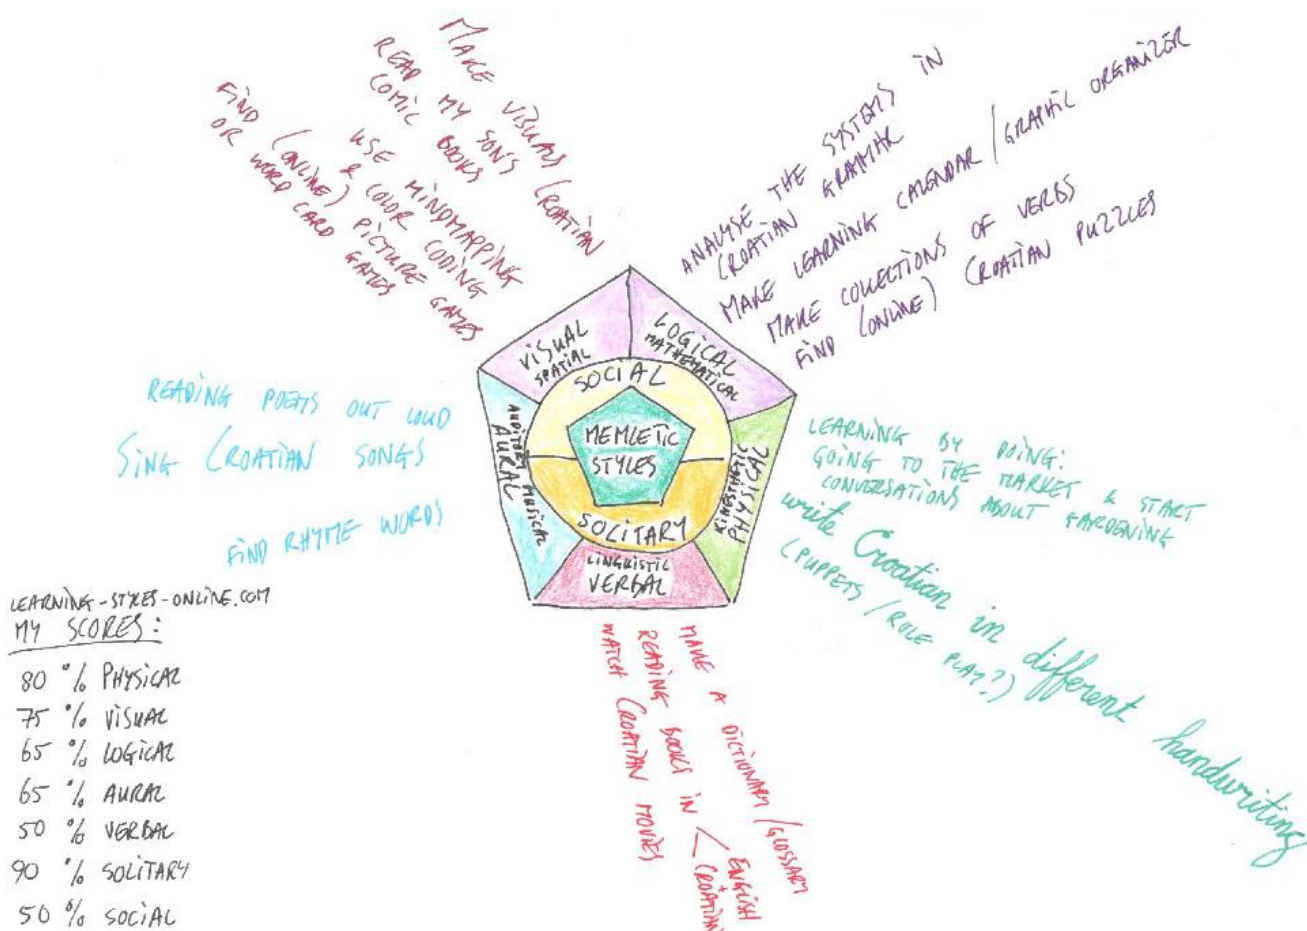 MAKE VISUALS (CROATIAN
READ MY SON'S
COMIC BOOKS
USE MINDMAPPING
& COLOR CODING
FIND (ONLINE) PICTURE GAMES
OR WORD CARD GAMES
ANALYSE THE SYSTEMS IN
CROATIAN GRAMMAR
MAKE LEARNING CALENDAR / GRAPHIC ORGANIZER
MAKE COLLECTIONS OF VERBS
FIND (ONLINE) CROATIAN PUZZLES
VISUAL
SPATIAL
LOGICAL
MATHEMATICAL
SOCIAL
MEMLETIC
STYLES
SOLITARY
AUDITORY MUSICAL
AURAL
KINESTHETIC
PHYSICAL
LINGUISTIC
VERBAL
READING POEMS OUT LOUD
SING CROATIAN SONGS
FIND RHYME WORDS
LEARNING BY DOING:
GOING TO THE MARKET & START
CONVERSATIONS ABOUT GARDENING
write Croatian in different handwriting
(PUPPETS / ROLE PLAY?)
MAKE A DICTIONARY / GLOSSARY
READING BOOKS IN ENGLISH
+
CROATIAN
WATCH CROATIAN MOVIES
LEARNING-STYLES-ONLINE.COM
MY SCORES:
80 % PHYSICAL
75 % VISUAL
65 % LOGICAL
65 % AURAL
50 % VERBAL
90 % SOLITARY
50 % SOCIAL